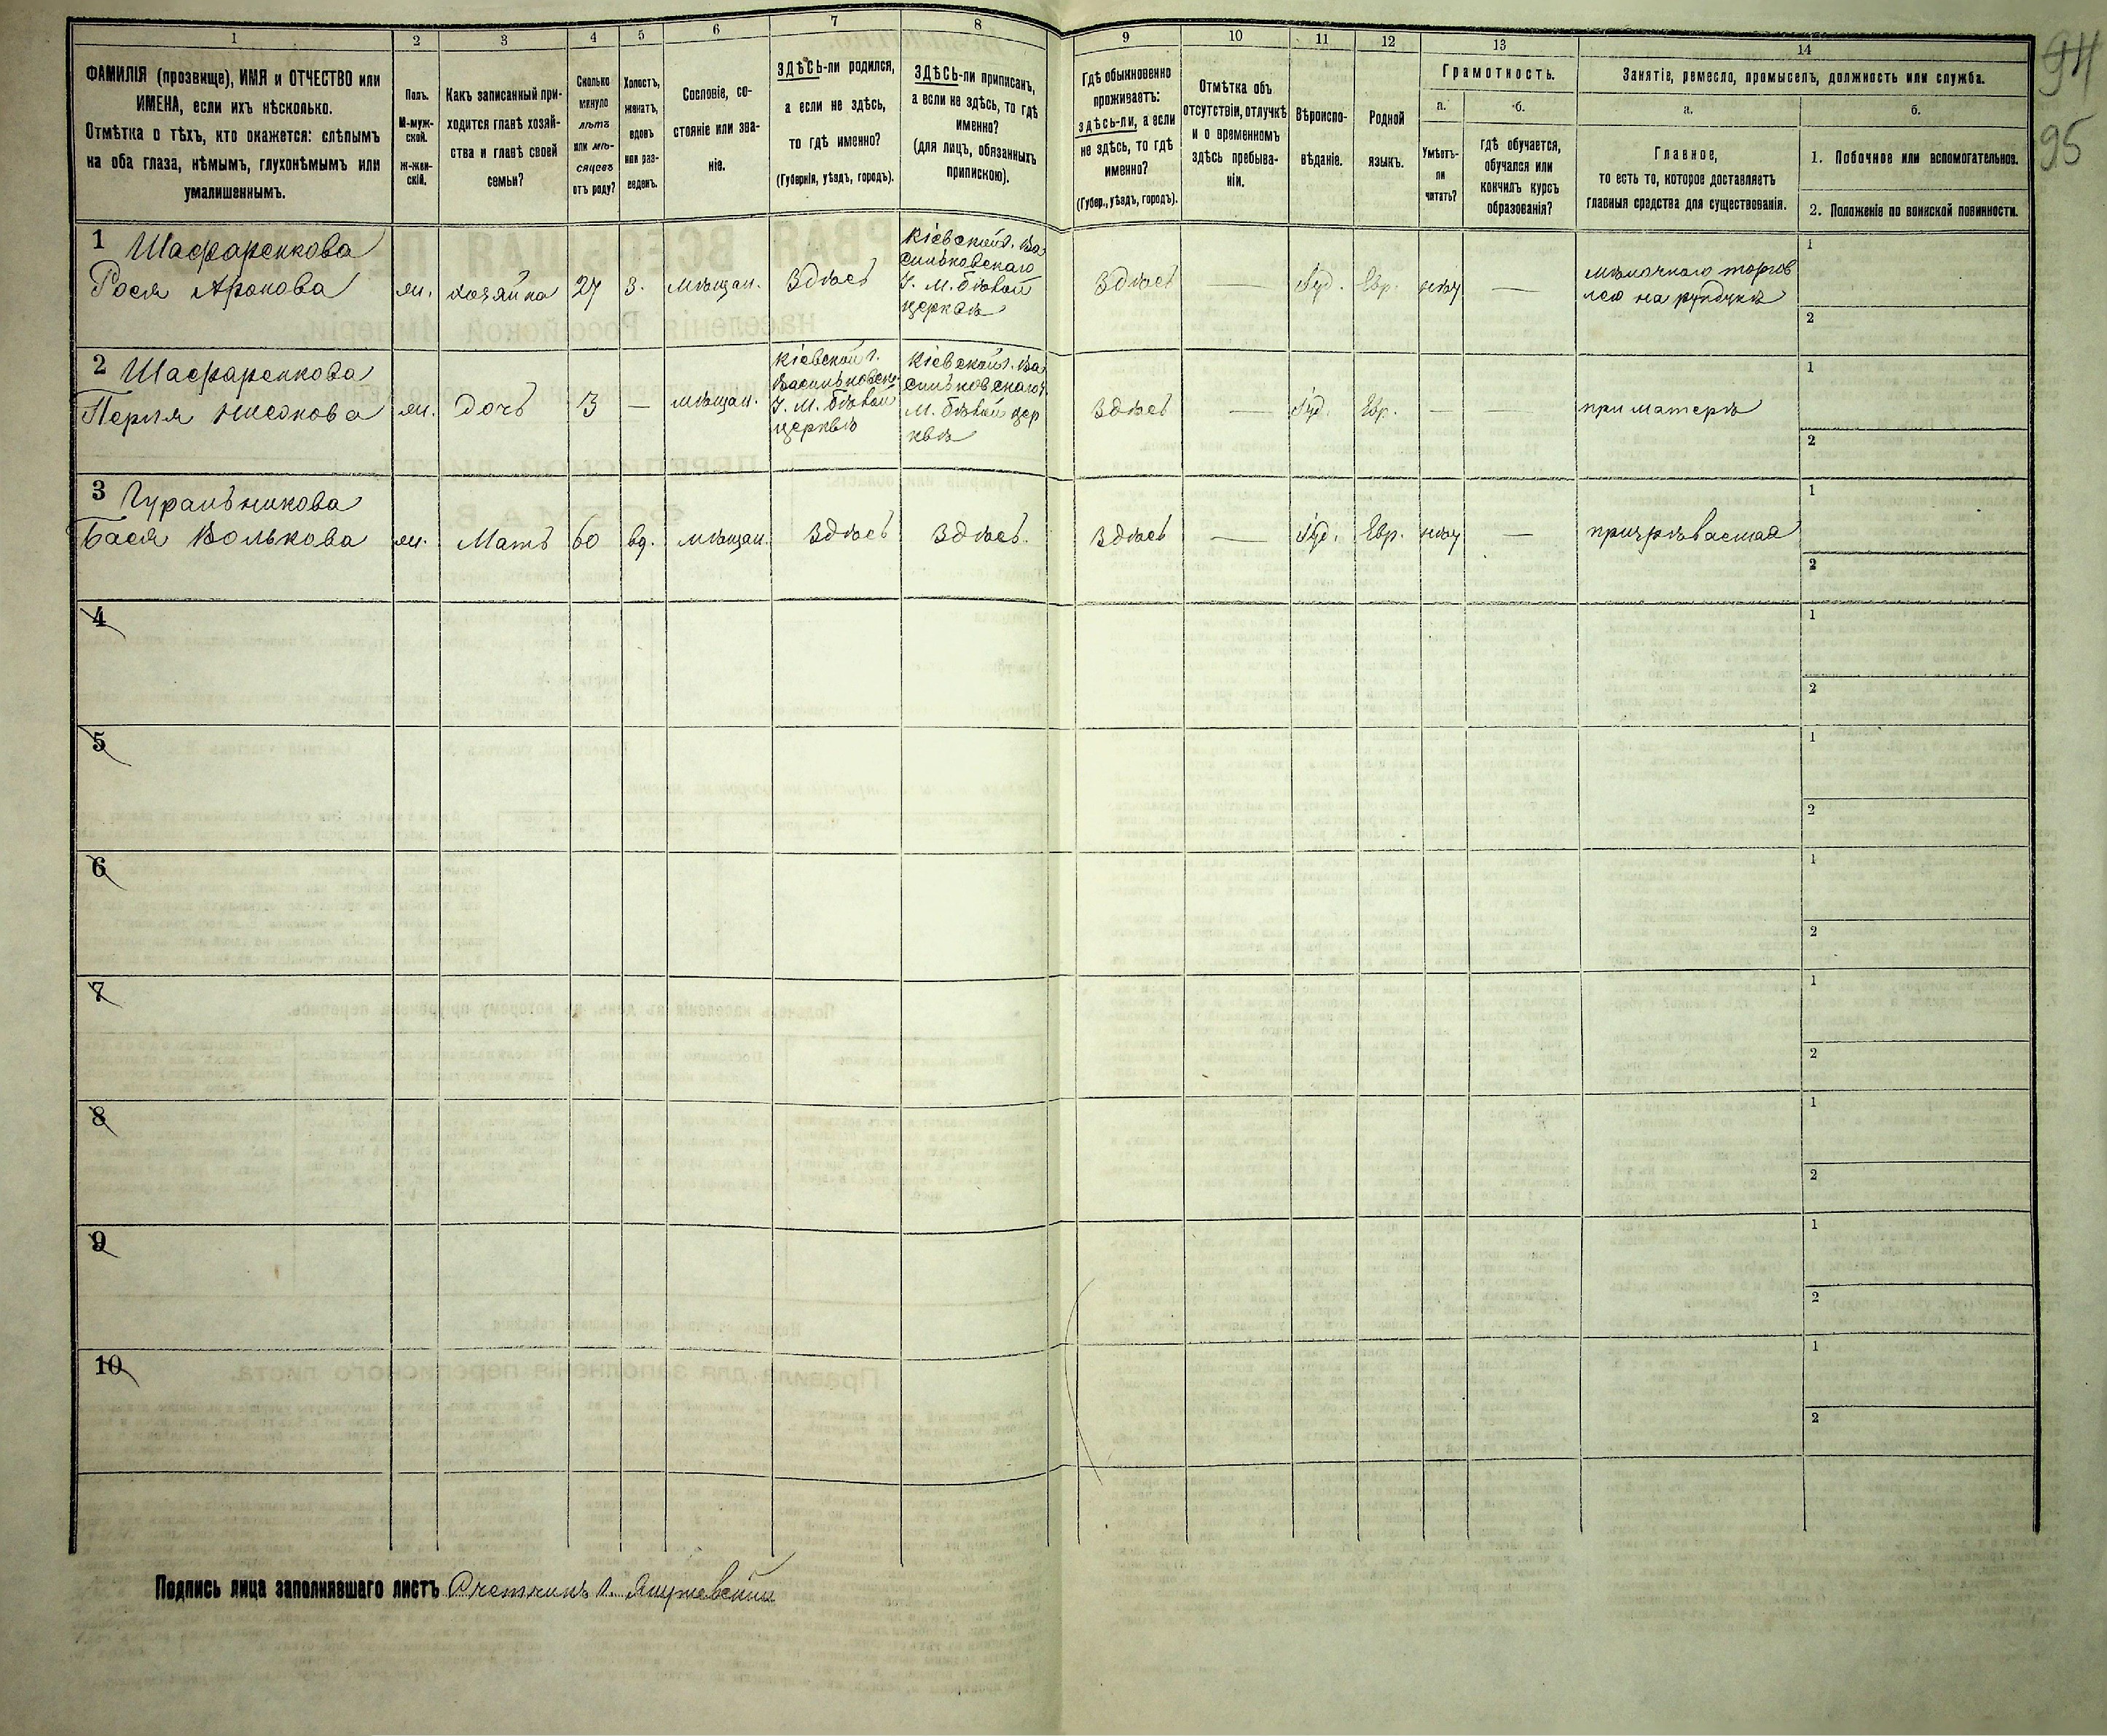 94
95
1
2
3
4
5
6
7
8
9
10
11
12
13
14
ФАМИЛІЯ (прозвище), ИМЯ и ОТЧЕСТВО или
ИМЕНА, если ихъ нѣсколько.
Отмѣтка о тѣхъ, кто окажется: слѣпымъ
на оба глаза, нѣмымъ, глухонѣмымъ или
умалишеннымъ.
Полъ.
М-муж-
ской.
Ж-жен-
скій.
Какъ записанный при-
ходится главѣ хозяй-
ства и главѣ своей
семьи?
Сколько
минуло
лѣтъ
или мѣ-
сяцевъ
отъ роду?
Холостъ,
женатъ,
вдовъ
или раз-
веденъ.
Сословіе, со-
стояніе или зва-
ніе.
ЗДѢСЬ-ли родился,
а если не здѣсь,
то гдѣ именно?
(Губернія, уѣздъ, городъ).
ЗДѢСЬ-ли приписанъ,
а если не здѣсь, то гдѣ
именно?
(для лицъ, обязанныхъ
припискою).
Гдѣ обыкновенно
проживаетъ:
здѣсь-ли, а если
не здѣсь, то гдѣ
именно?
(Губер., уѣздъ, городъ).
Отмѣтка объ
отсутствіи, отлучкѣ
и о временномъ
здѣсь пребыва-
ніи.
Вѣроиспо-
вѣданіе.
Родной
языкъ.
Грамотность.
а.
б.
Умѣетъ-
ли
читать?
гдѣ обучается,
обучался или
кончилъ курсъ
образованія?
Занятіе, ремесло, промыселъ, должность или служба.
а.
б.
Главное,
то есть то, которое доставляетъ
главныя средства для существованія.
1. Побочное или вспомогательное.
2. Положеніе по воинской повинности.
1 Шафаренкова
Рося Аронова
жн.
хозяйка
27
З.
мѣщан.
Здѣсь
Кіевской г. Ва
сильковскаго
У. М. Бѣлой
церквѣ
Здѣсь
—
Іуд.
Евр.
нѣт
—
мѣлочною торгов
лею на рундукѣ
1
2
2 Шафаренкова
Перля Нисонова
жн.
Дочь
3
—
мѣщан.
Кіевской г.
Васильковско
У. М. Бѣлой
церквѣ
Кіевской г. Ва
сильковскаго У.
М. Бѣлой цер
квѣ
Здѣсь
—
Іуд.
Евр.
—
—
при матерѣ
1
2
3 Гуральникова
Бася Волькова
жн.
Мать
60
вд.
мѣщан.
Здѣсь
Здѣсь.
Здѣсь
—
Іуд.
Евр.
нѣт
—
призрѣваемая
1
2
4
1
2
5
1
2
6
1
2
7
1
2
8
1
2
9
1
2
10
1
2
Подпись лица заполнявшаго листъ Счетчикъ